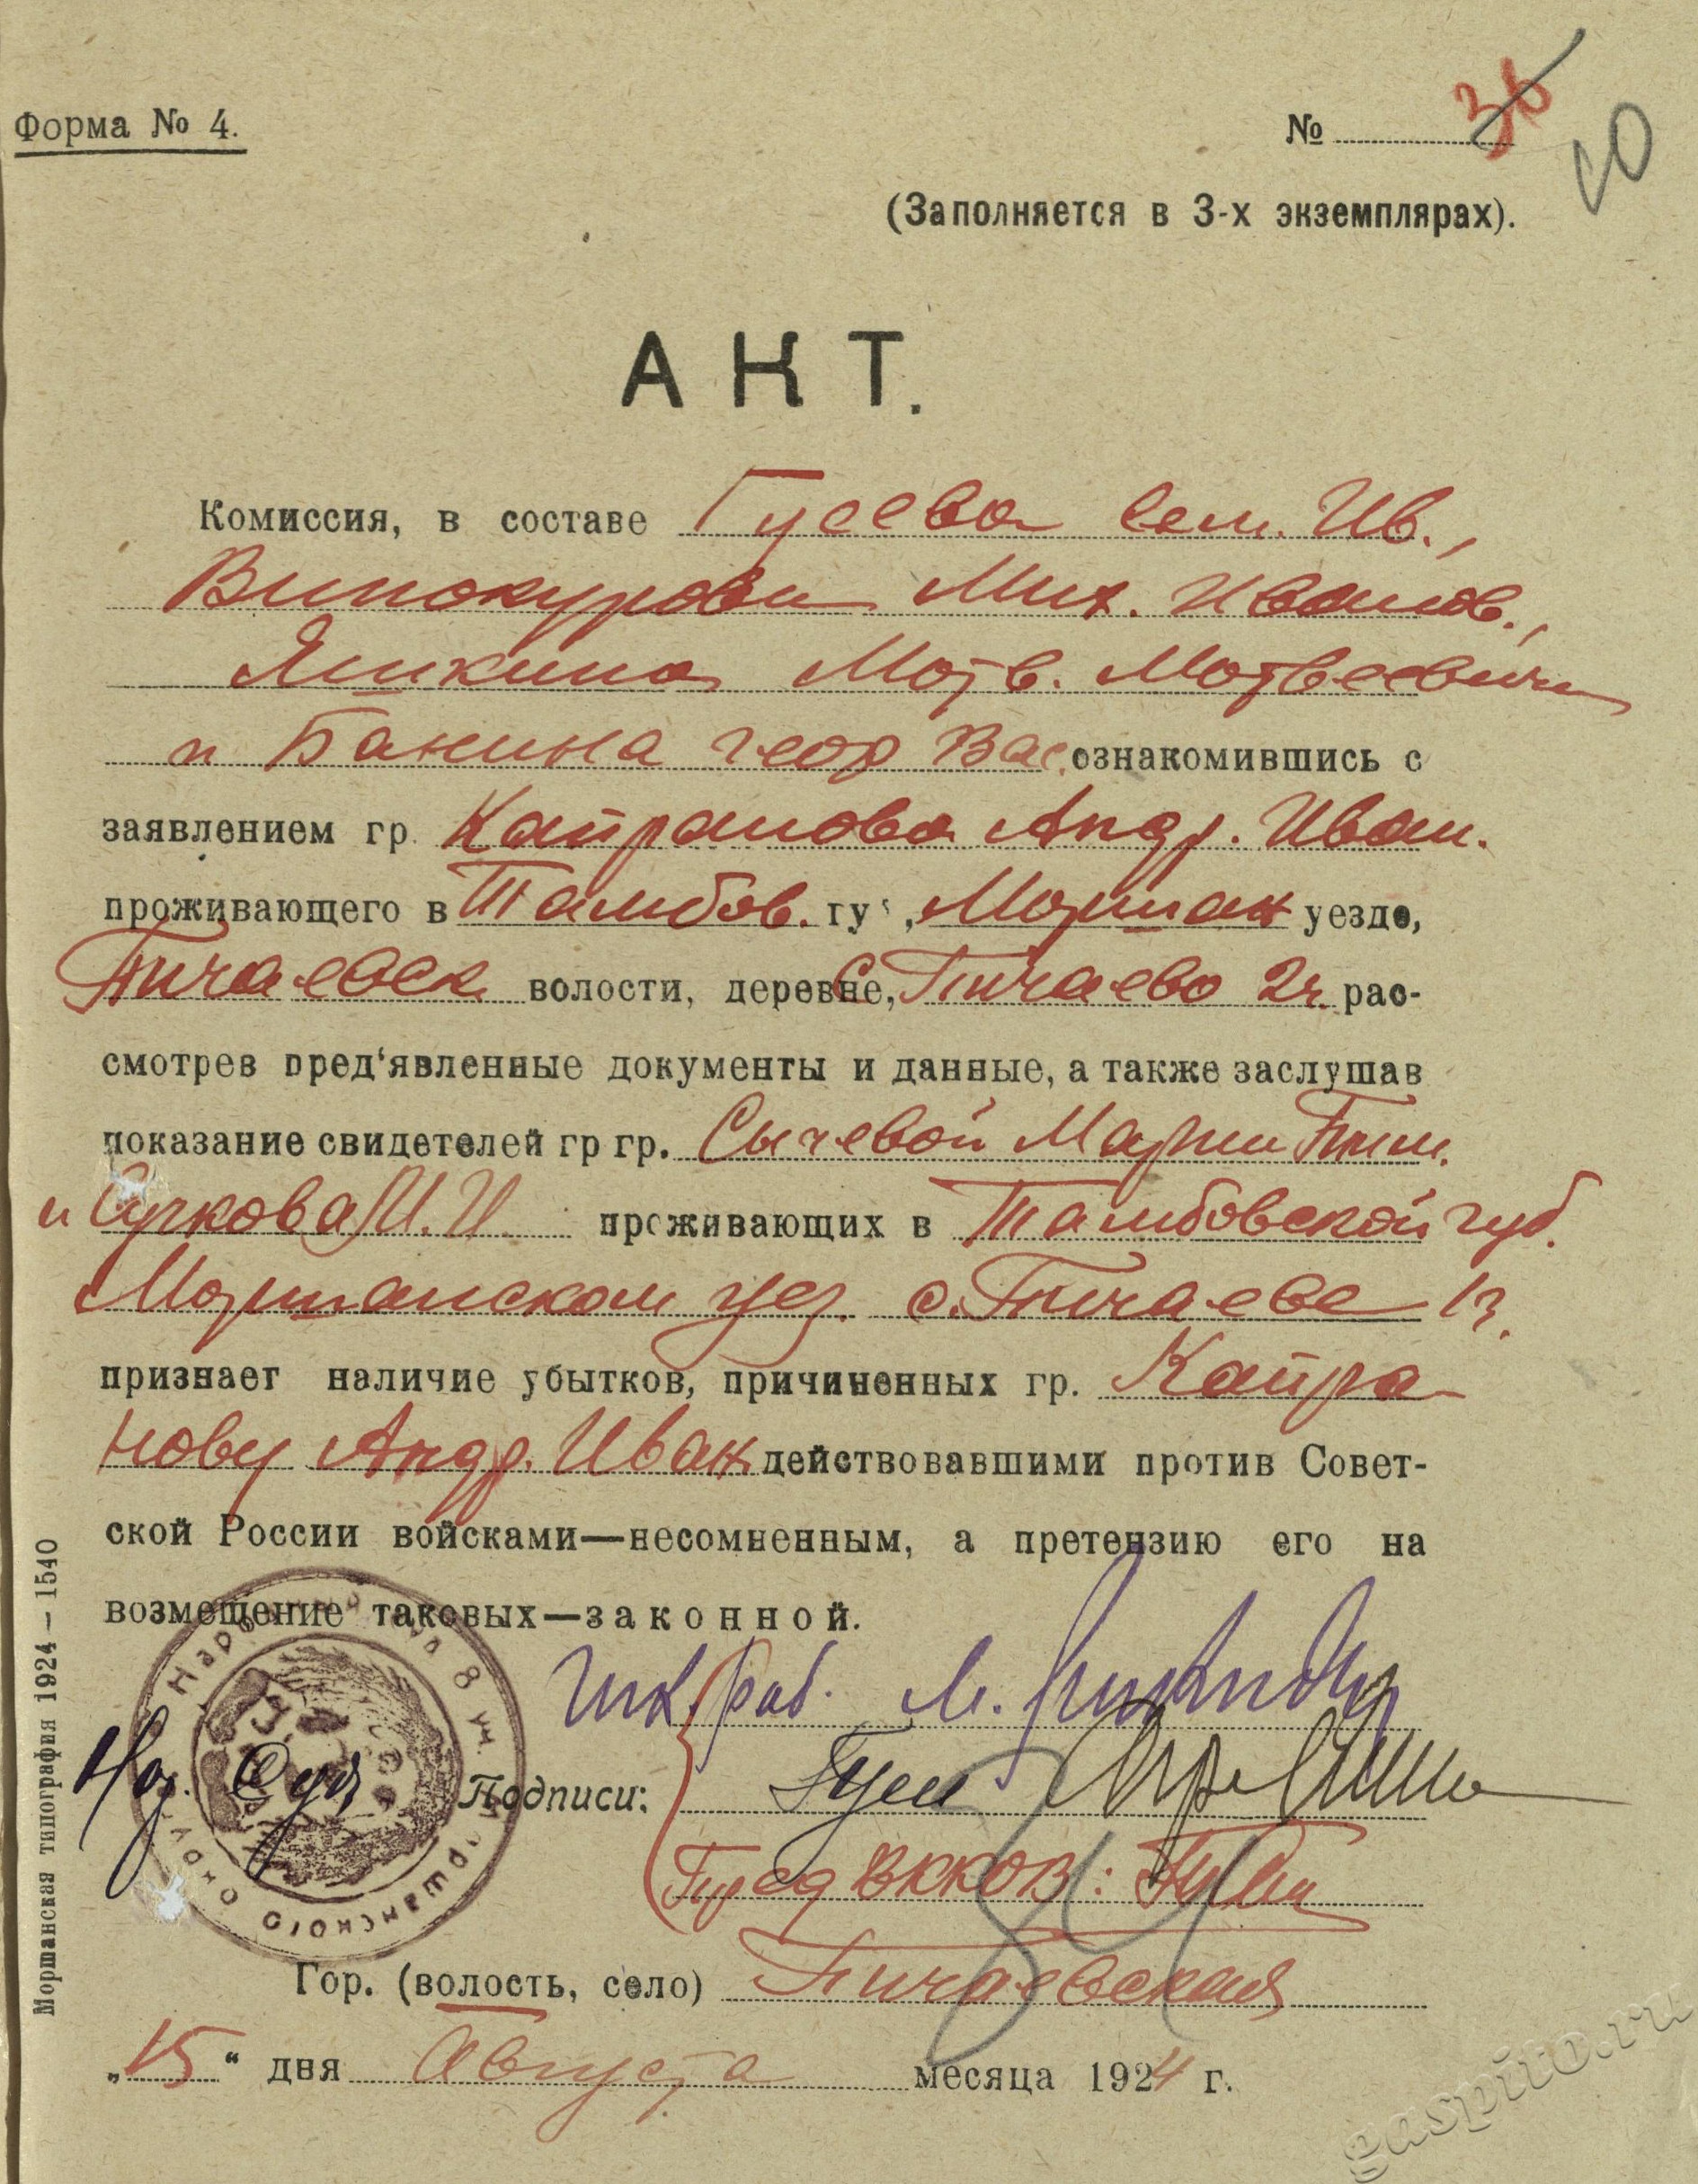 Форма № 4.
№ 36
10
(Заполняется в 3-х экземплярах).
АКТ.
Комиссия, в составе Гусева Сем. Ив.,
Винокурова Мих. Иванов.,
Яшкина Матв. Матвеевича
и Банина Геор Вас. ознакомившись с
заявлением гр. Капранова Андр. Иван.
проживающего в Тамбов. гу , Моршан уезде,
Пичаевск волости, деревне, с. Пичаево 2 ч. рас-
смотрев пред'явленные документы и данные, а также заслушав
показание свидетелей гр гр. Сычевой Марии
и Сучкова И. И проживающих в Тамбовской губ.
Моршанском уез. с. Пичаеве
признает наличие убытков, причиненных гр. Капра-
нову Андр. Иван действовавшими против Совет-
ской России войсками—несомненным, а претензию его на
возмещение таковых—законной.
Шк. раб. М.
Нар. Судья Подписи:
Пред ВККОВ:
Гор. (волость, село) Пичаевская
„15“ дня Августа месяца 1924 г.
Моршанская типография 1924 – 1540
gaspito.ru